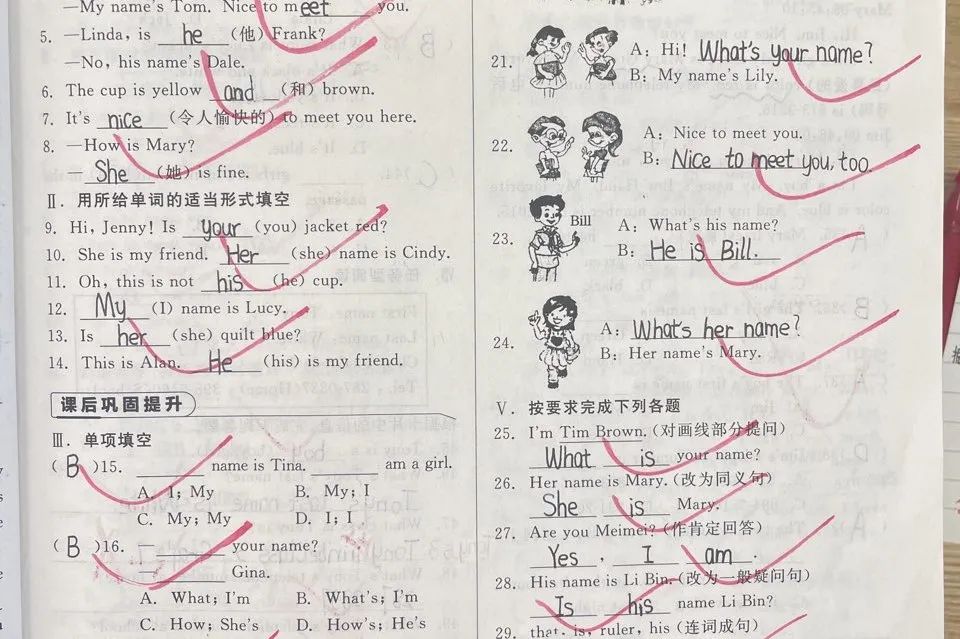 —My name's Tom. Nice to meet you.
5. —Linda, is he (他) Frank?
—No, his name's Dale.
6. The cup is yellow and (和) brown.
7. It's nice (令人愉快的) to meet you here.
8. —How is Mary?
—She (她) is fine.
Ⅱ. 用所给单词的适当形式填空
9. Hi, Jenny! Is your (you) jacket red?
10. She is my friend. Her (she) name is Cindy.
11. Oh, this is not his (he) cup.
12. My (I) name is Lucy.
13. Is her (she) quilt blue?
14. This is Alan. He (his) is my friend.
课后巩固提升
Ⅲ. 单项填空
( B )15. ______ name is Tina. ______ am a girl.
A. I; My B. My; I
C. My; My D. I; I
( B )16. —______ your name?
—______ Gina.
A. What; I'm B. What's; I'm
C. How; She's D. How's; He's
21. A: Hi! What's your name?
B: My name's Lily.
22. A: Nice to meet you.
B: Nice to meet you, too.
Bill
23. A: What's his name?
B: He is Bill.
24. A: What's her name?
B: Her name's Mary.
Ⅴ. 按要求完成下列各题
25. I'm Tim Brown. (对画线部分提问)
What is your name?
26. Her name is Mary. (改为同义句)
She is Mary.
27. Are you Meimei? (作肯定回答)
Yes, I am.
28. His name is Li Bin. (改为一般疑问句)
Is his name Li Bin?
29. that, is, ruler, his (连词成句)